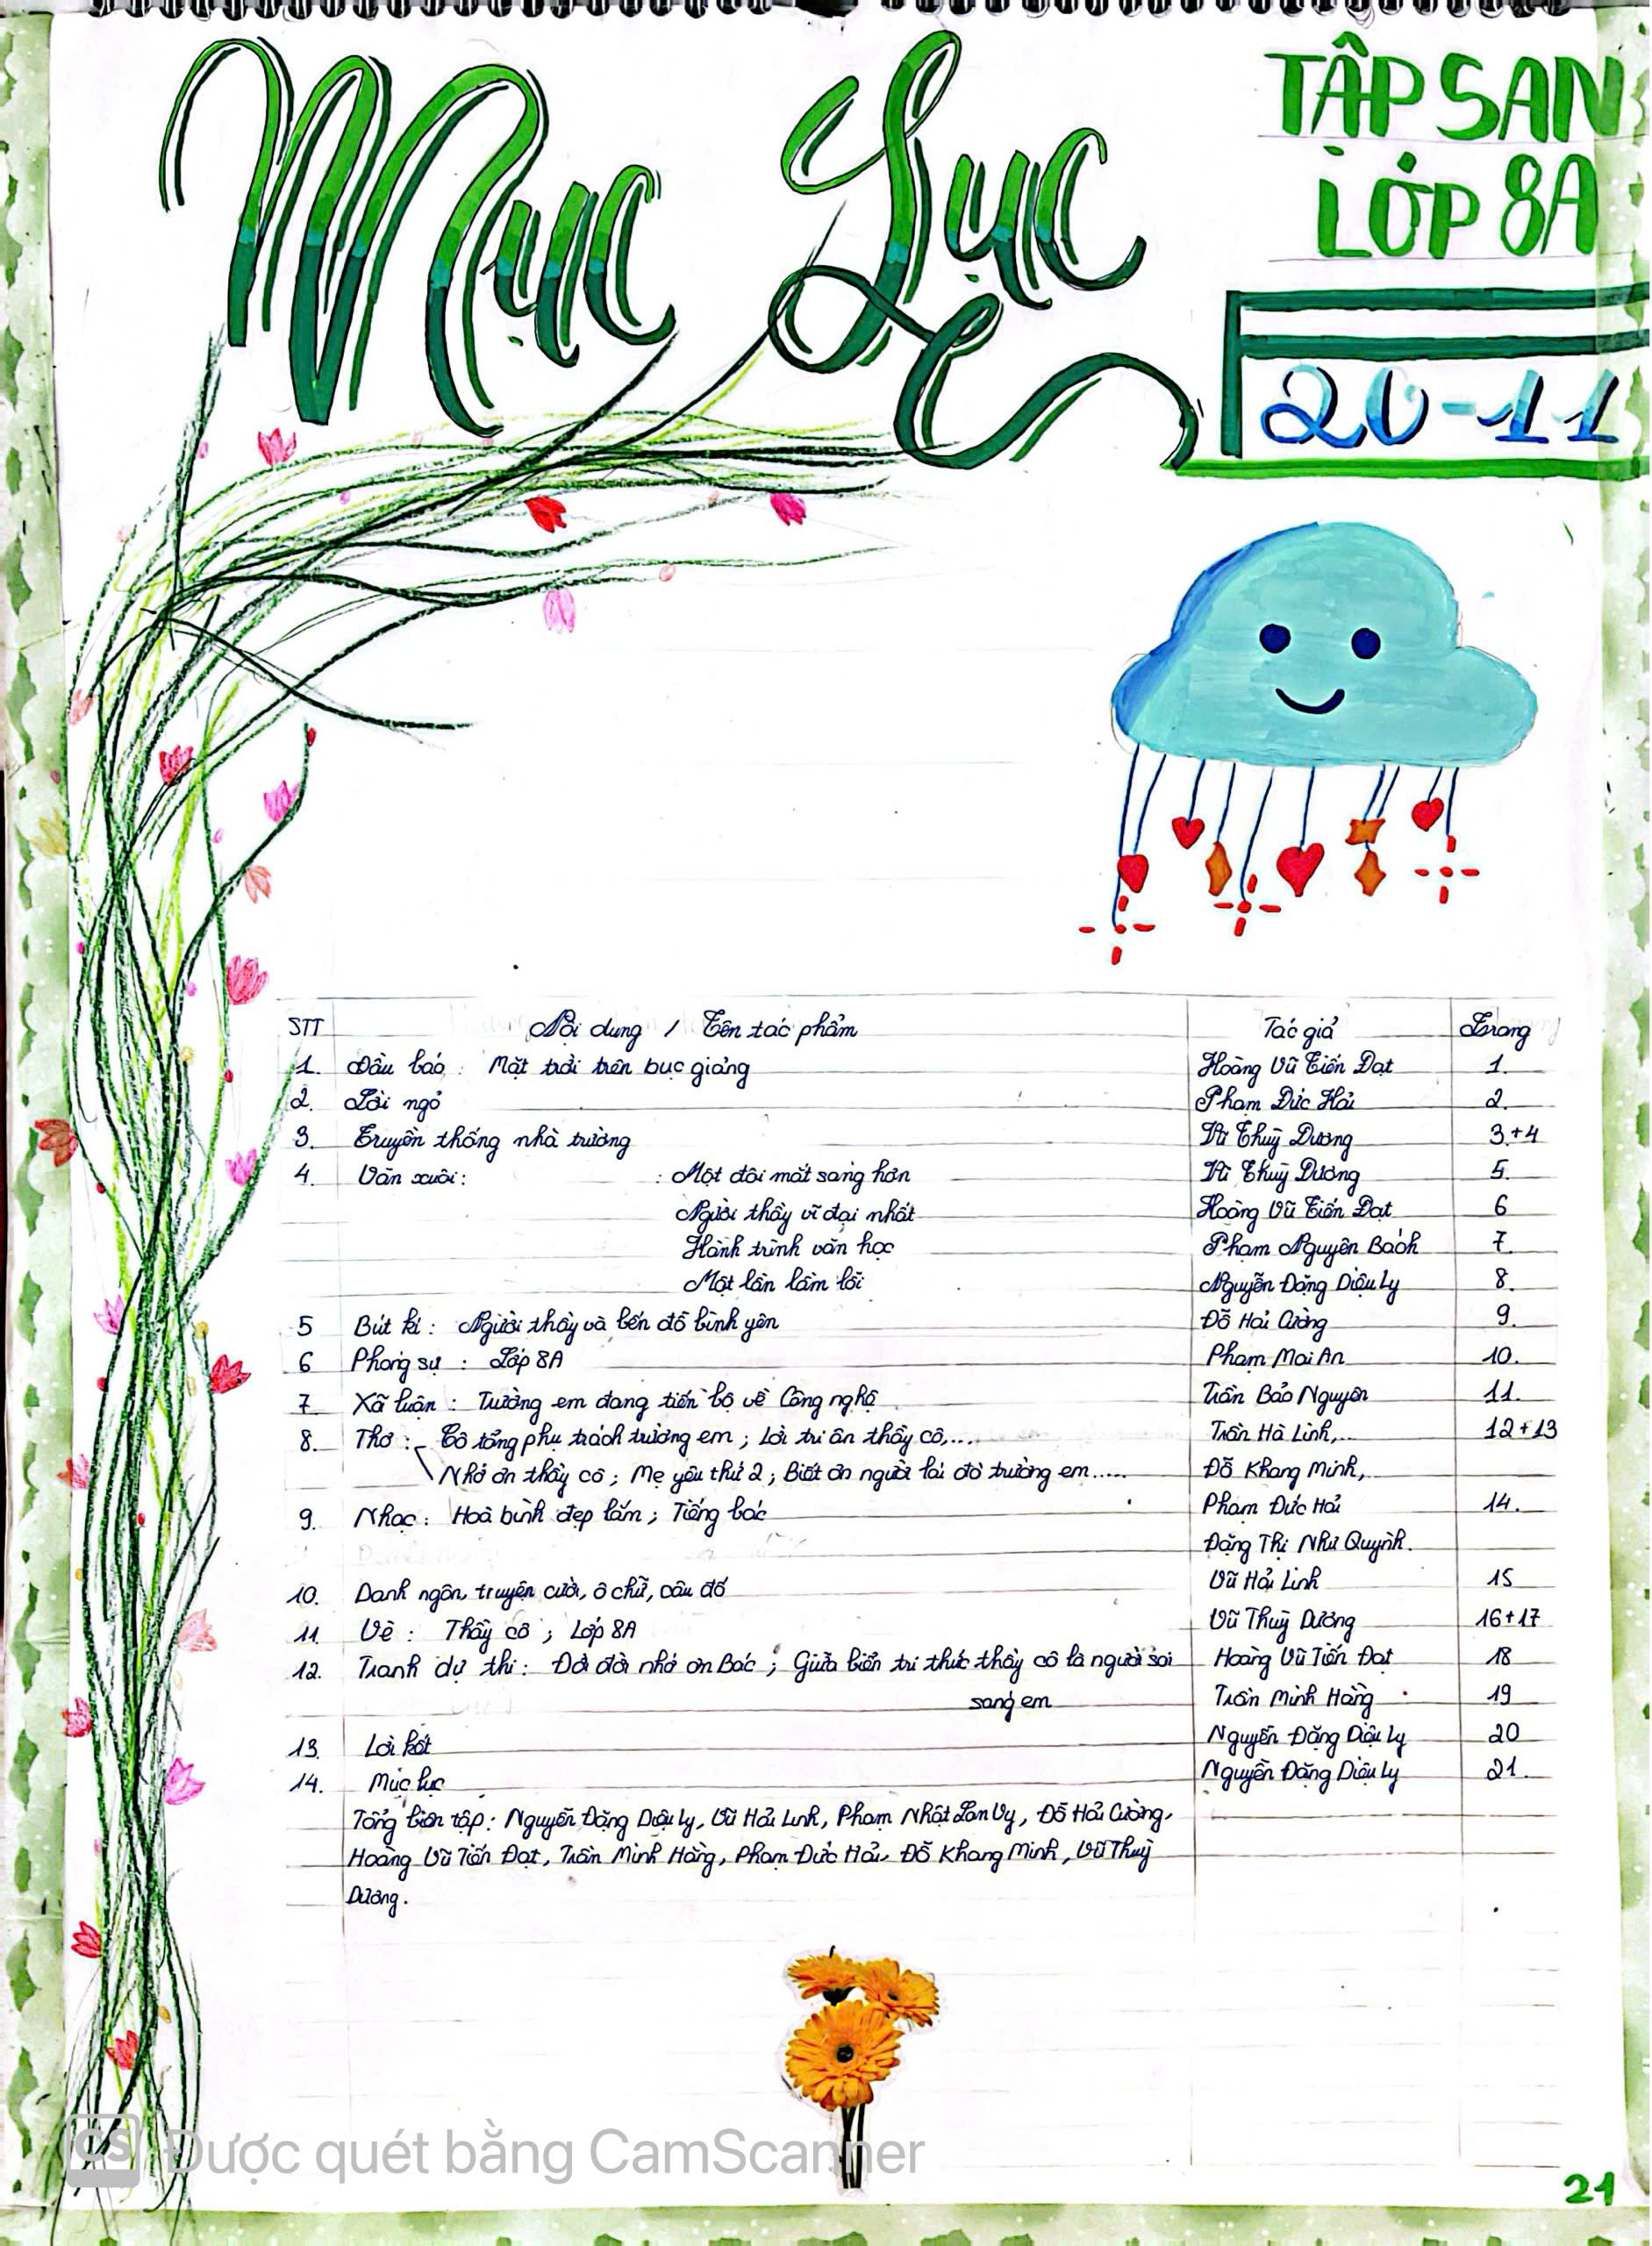 Mục Lục
TẬP SAN
LỚP 8A
20-11
STT Nội dung / Tên tác phẩm Tác giả Trang
1. Đầu báo: Mặt trời trên bục giảng Hoàng Vũ Tiến Đạt 1.
2. Lời ngỏ Phạm Đức Hải 2.
3. Truyền thống nhà trường Vũ Thuỳ Dương 3+4
4. Văn xuôi: : Một đôi mắt sáng hơn Vũ Thuỳ Dương 5.
Người thầy vĩ đại nhất Hoàng Vũ Tiến Đạt 6
Hành trình văn học Phạm Nguyên Bách 7.
Một lần lầm lỗi Nguyễn Đặng Diệu Ly 8.
5 Bút kí: Người thầy và bến đỗ bình yên Đỗ Hải Cường 9.
6 Phóng sự: Lớp 8A Phạm Mai An 10.
7 Xã luận: Trường em đang tiến bộ về Công nghệ Trần Bảo Nguyên 11.
8. Thơ: Cô tổng phụ trách trường em; Lời tri ân thầy cô,.... Trần Hà Linh,.. 12+13
Nhớ ơn thầy cô; Mẹ yêu thứ 2; Biết ơn người lái đò trường em..... Đỗ Khang Minh,
9. Nhạc: Hoà bình đẹp lắm; Tiếng bác Phạm Đức Hải 14.
Đặng Thị Như Quỳnh.
10. Danh ngôn, truyện cười, ô chữ, câu đố Vũ Hải Linh 15
11. Vè: Thầy cô; Lớp 8A Vũ Thuỳ Dương 16+17
12. Tranh dự thi: Đời đời nhớ ơn Bác; Giữa biển tri thức thầy cô là người soi Hoàng Vũ Tiến Đạt 18
sáng em Trần Minh Hằng 19
13. Lời kết Nguyễn Đặng Diệu Ly 20
14. Mục lục Nguyễn Đặng Diệu Ly 21.
Tổng biên tập: Nguyễn Đặng Diệu Ly, Vũ Hải Linh, Phạm Nhật Lan Vy, Đỗ Hải Cường,
Hoàng Vũ Tiến Đạt, Trần Minh Hằng, Phạm Đức Hải, Đỗ Khang Minh, Vũ Thuỳ
Dương.
CS Được quét bằng CamScanner
21